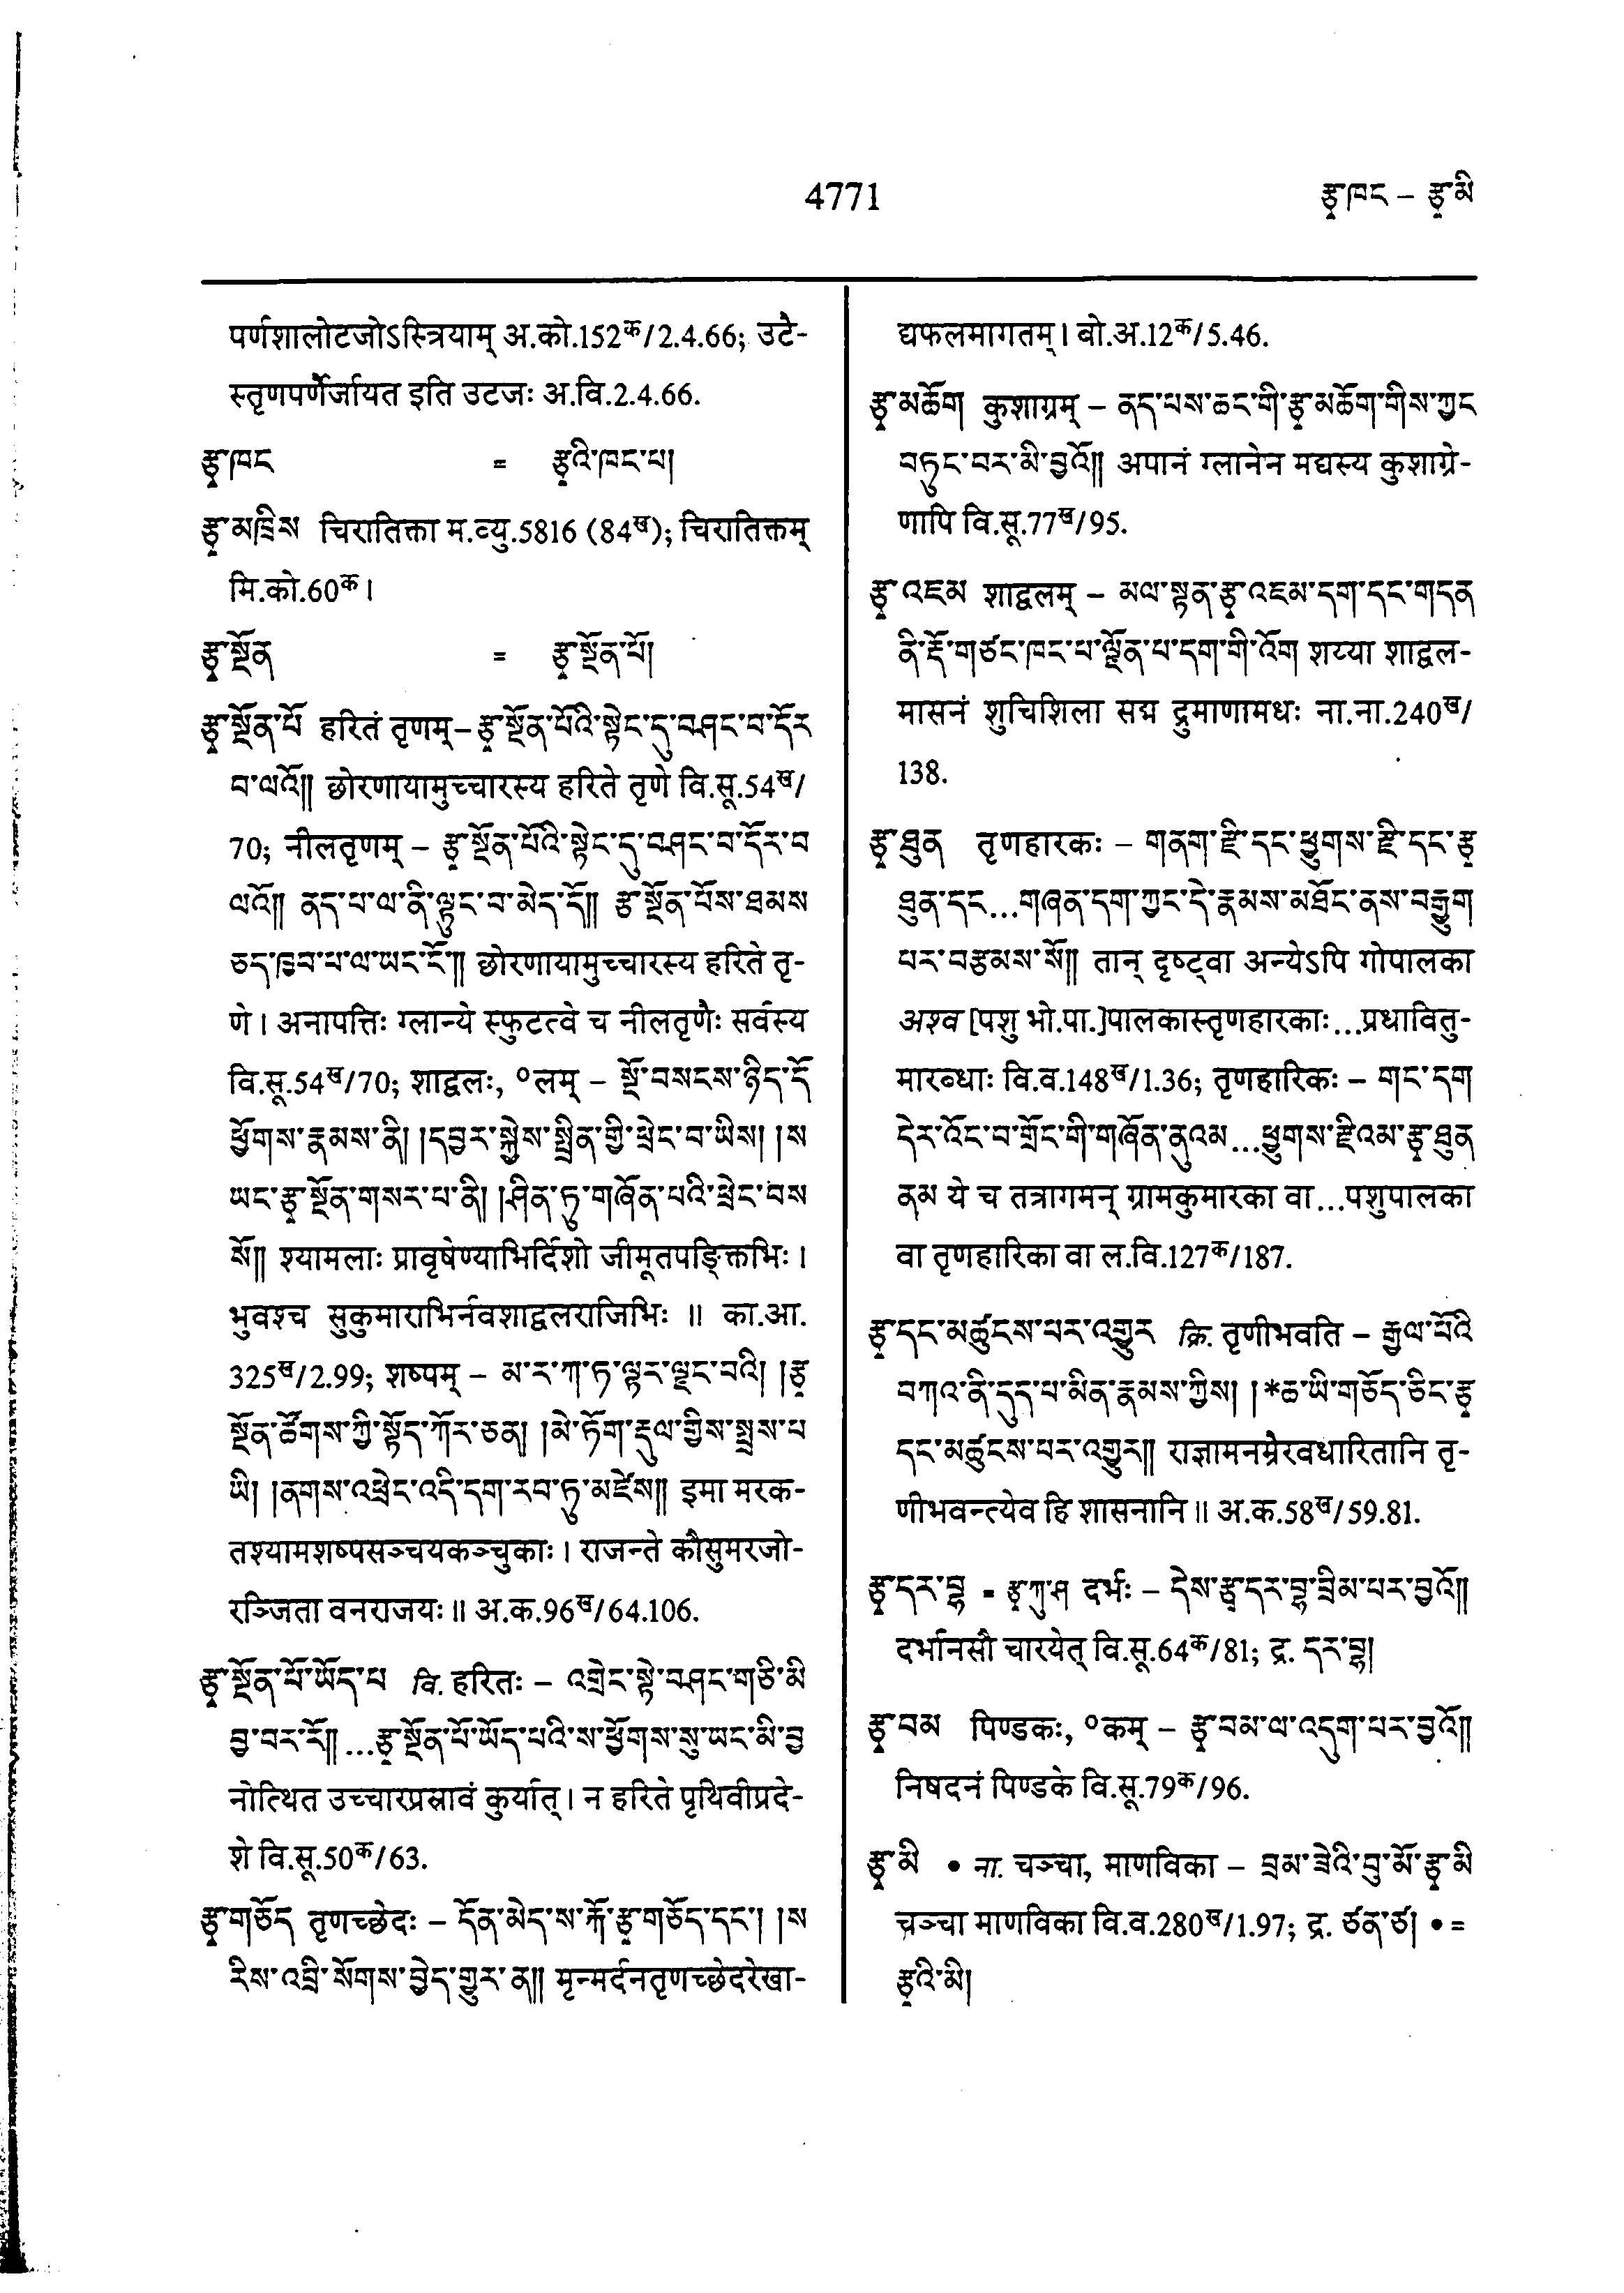 4771
རྩྭ་ཁང – རྩྭ་མི
पर्णशालोटजोऽस्त्रियाम् अ.को.152क/2.4.66; उटै-
स्तृणपर्णैर्जायत इति उटजः अ.वि.2.4.66.
རྩྭ་ཁང = རྩྭའི་ཁང་པ།
རྩྭ་མཁྲིས चिरातिक्ता म.व्यु.5816 (84ख); चिरातिक्तम्
मि.को.60क।
རྩྭ་སྔོན = རྩྭ་སྔོན་པོ།
རྩྭ་སྔོན་པོ हरितं तृणम्–རྩྭ་སྔོན་པོའི་སྟེང་དུ་བཤང་བ་དོར
བ་ལའོ།། छोरणायामुच्चारस्य हरिते तृणे वि.सू.54ख/
70; नीलतृणम् – རྩྭ་སྔོན་པོའི་སྟེང་དུ་བཤང་བ་དོར་བ
ལའོ།། ནད་པ་ལ་ནི་ལྟུང་བ་མེད་དོ།། རྩ་སྔོན་པོས་ཐམས
ཅད་ཁྱབ་པ་ལ་ཡང་ངོ་།། छोरणायामुच्चारस्य हरिते तृ-
णे। अनापत्तिः ग्लान्ये स्फुटत्वे च नीलतृणैः सर्वस्य
वि.सू.54ख/70; शाद्वलः, ०लम् – སྔོ་བསངས་ཉིད་དོ
ཕྱོགས་རྣམས་ནི། །དབྱར་སྐྱེས་སྤྲིན་གྱི་ཕྲེང་བ་ཡིས། །ས
ཡང་རྩྭ་སྔོན་གསར་པ་ནི། །ཤིན་ཏུ་གཞོན་པའི་ཕྲེང་བས
སོ།། श्यामलाः प्रावृषेण्याभिर्दिशो जीमूतपङ्क्तिभिः।
भुवश्च सुकुमाराभिर्नवशाद्वलराजिभिः ॥ का.आ.
325ख/2.99; शष्पम् – མ་ར་ཀ་ཏ་ལྟར་ལྗང་བའི། །རྩྭ
སྔོན་ཚོགས་ཀྱི་སྟོད་ཀོར་ཅན། །མེ་ཏོག་རྡུལ་གྱིས་སྤྲས་པ
ཡི། །ནགས་འཕྲེང་འདི་དག་རབ་ཏུ་མཛེས།། इमा मरक-
तश्यामशष्पसञ्चयकञ्चुकाः। राजन्ते कौसुमरजो-
रञ्जिता वनराजयः॥ अ.क.96ख/64.106.
རྩྭ་སྔོན་པོ་ཡོད་པ वि. हरितः – འགྲེང་སྟེ་བཤང་གཅི་མི
བྱ་བར་རོ།། ...རྩྭ་སྔོན་པོ་ཡོད་པའི་ས་ཕྱོགས་སུ་ཡང་མི་བྱ
नोत्थित उच्चारप्रस्रावं कुर्यात्। न हरिते पृथिवीप्रदे-
शे वि.सू.50क/63.
རྩྭ་གཅོད तृणच्छेदः – དོན་མེད་ས་རྐོ་རྩྭ་གཅོད་དང་། །ས
རིས་འབྲི་སོགས་བྱེད་གྱུར་ན།། मृन्मर्दनतृणच्छेदरेखा-
द्यफलमागतम्। बो.अ.12क/5.46.
རྩྭ་མཆོག कुशाग्रम् – ནད་པས་ཆང་གི་རྩྭ་མཆོག་གིས་ཀྱང
བཏུང་བར་མི་བྱའོ།། अपानं ग्लानेन मद्यस्य कुशाग्रे-
णापि वि.सू.77ख/95.
རྩྭ་འཇམ शाद्वलम् – མལ་སྟན་རྩྭ་འཇམ་དག་དང་གདན
ནི་རྡོ་གཙང་ཁང་པ་ལྗོན་པ་དག་གི་འོག शय्या शाद्वल-
मासनं शुचिशिला सद्म द्रुमाणामधः ना.ना.240ख/
138.
རྩྭ་ཐུན तृणहारकः – གནག་རྫི་དང་ཕྱུགས་རྫི་དང་རྩྭ
ཐུན་དང...གཞན་དག་ཀྱང་དེ་རྣམས་མཐོང་ནས་བརྒྱུག
པར་བརྩམས་སོ།། तान् दृष्ट्वा अन्येऽपि गोपालका
अश्व [पशु भो.पा.]पालकास्तृणहारकाः...प्रधावितु-
मारब्धाः वि.व.148ख/1.36; तृणहारिकः – གང་དག
དེར་འོང་བ་གྲོང་གི་གཞོན་ནུའམ...ཕྱུགས་རྫིའམ་རྩྭ་ཐུན
ནམ ये च तत्रागमन् ग्रामकुमारका वा...पशुपालका
वा तृणहारिका वा ल.वि.127क/187.
རྩྭ་དང་མཚུངས་པར་འགྱུར क्रि. तृणीभवति – རྒྱལ་པོའི
བཀའ་ནི་དུད་པ་མིན་རྣམས་ཀྱིས། །*ཆ་ཡི་གཅོད་ཅིང་རྩྭ
དང་མཚུངས་པར་འགྱུར།། राज्ञामनम्रैरवधारितानि तृ-
णीभवन्त्येव हि शासनानि॥ अ.क.58ख/59.81.
རྩྭ་དར་བྷ = རྩྭ་ཀུ་ཤ दर्भः – དེས་རྩྭ་དར་བྷ་བྲིམ་པར་བྱའོ།།
दर्भानसौ चारयेत् वि.सू.64क/81; द्र. དར་བྷ།
རྩྭ་བམ पिण्डकः, ०कम् – རྩྭ་བམ་ལ་འདུག་པར་བྱའོ།།
निषदनं पिण्डके वि.सू.79क/96.
རྩྭ་མི • ना. चञ्चा, माणविका – བྲམ་ཟེའི་བུ་མོ་རྩྭ་མི
चञ्चा माणविका वि.व.280ख/1.97; द्र. ཙན་ཙ། • =
རྩྭའི་མི།